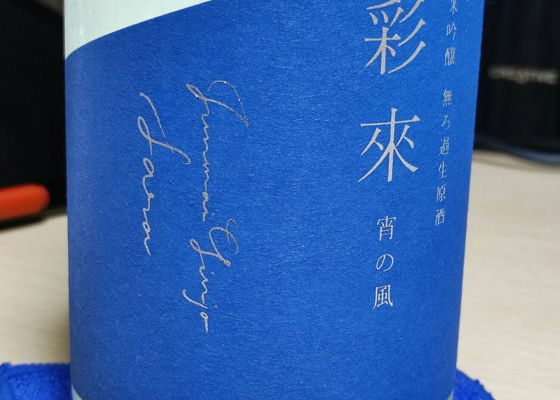 米吟醸 無ろ過生原酒
彩來
宵の風
Junmai Ginjo
Sara